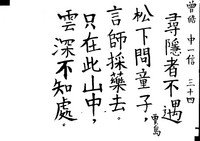 曾皓 中一信 三十四
尋隱者不遇
賈島
松下問童子，
言師採藥去。
只在此山中，
雲深不知處。